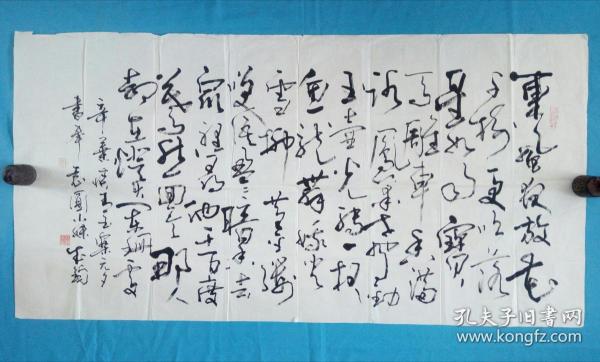 東風夜放花
千樹更吹落
星如雨寶
馬雕車香滿
路鳳簫聲動
玉壺光轉一夜
魚龍舞蛾兒
雪柳黃金縷
笑語盈盈暗香去
眾裡尋他千百度
驀然回首那人
却在燈火闌珊處
辛棄疾青玉案元夕
書奉
孔夫子旧书网
www.kongfz.com